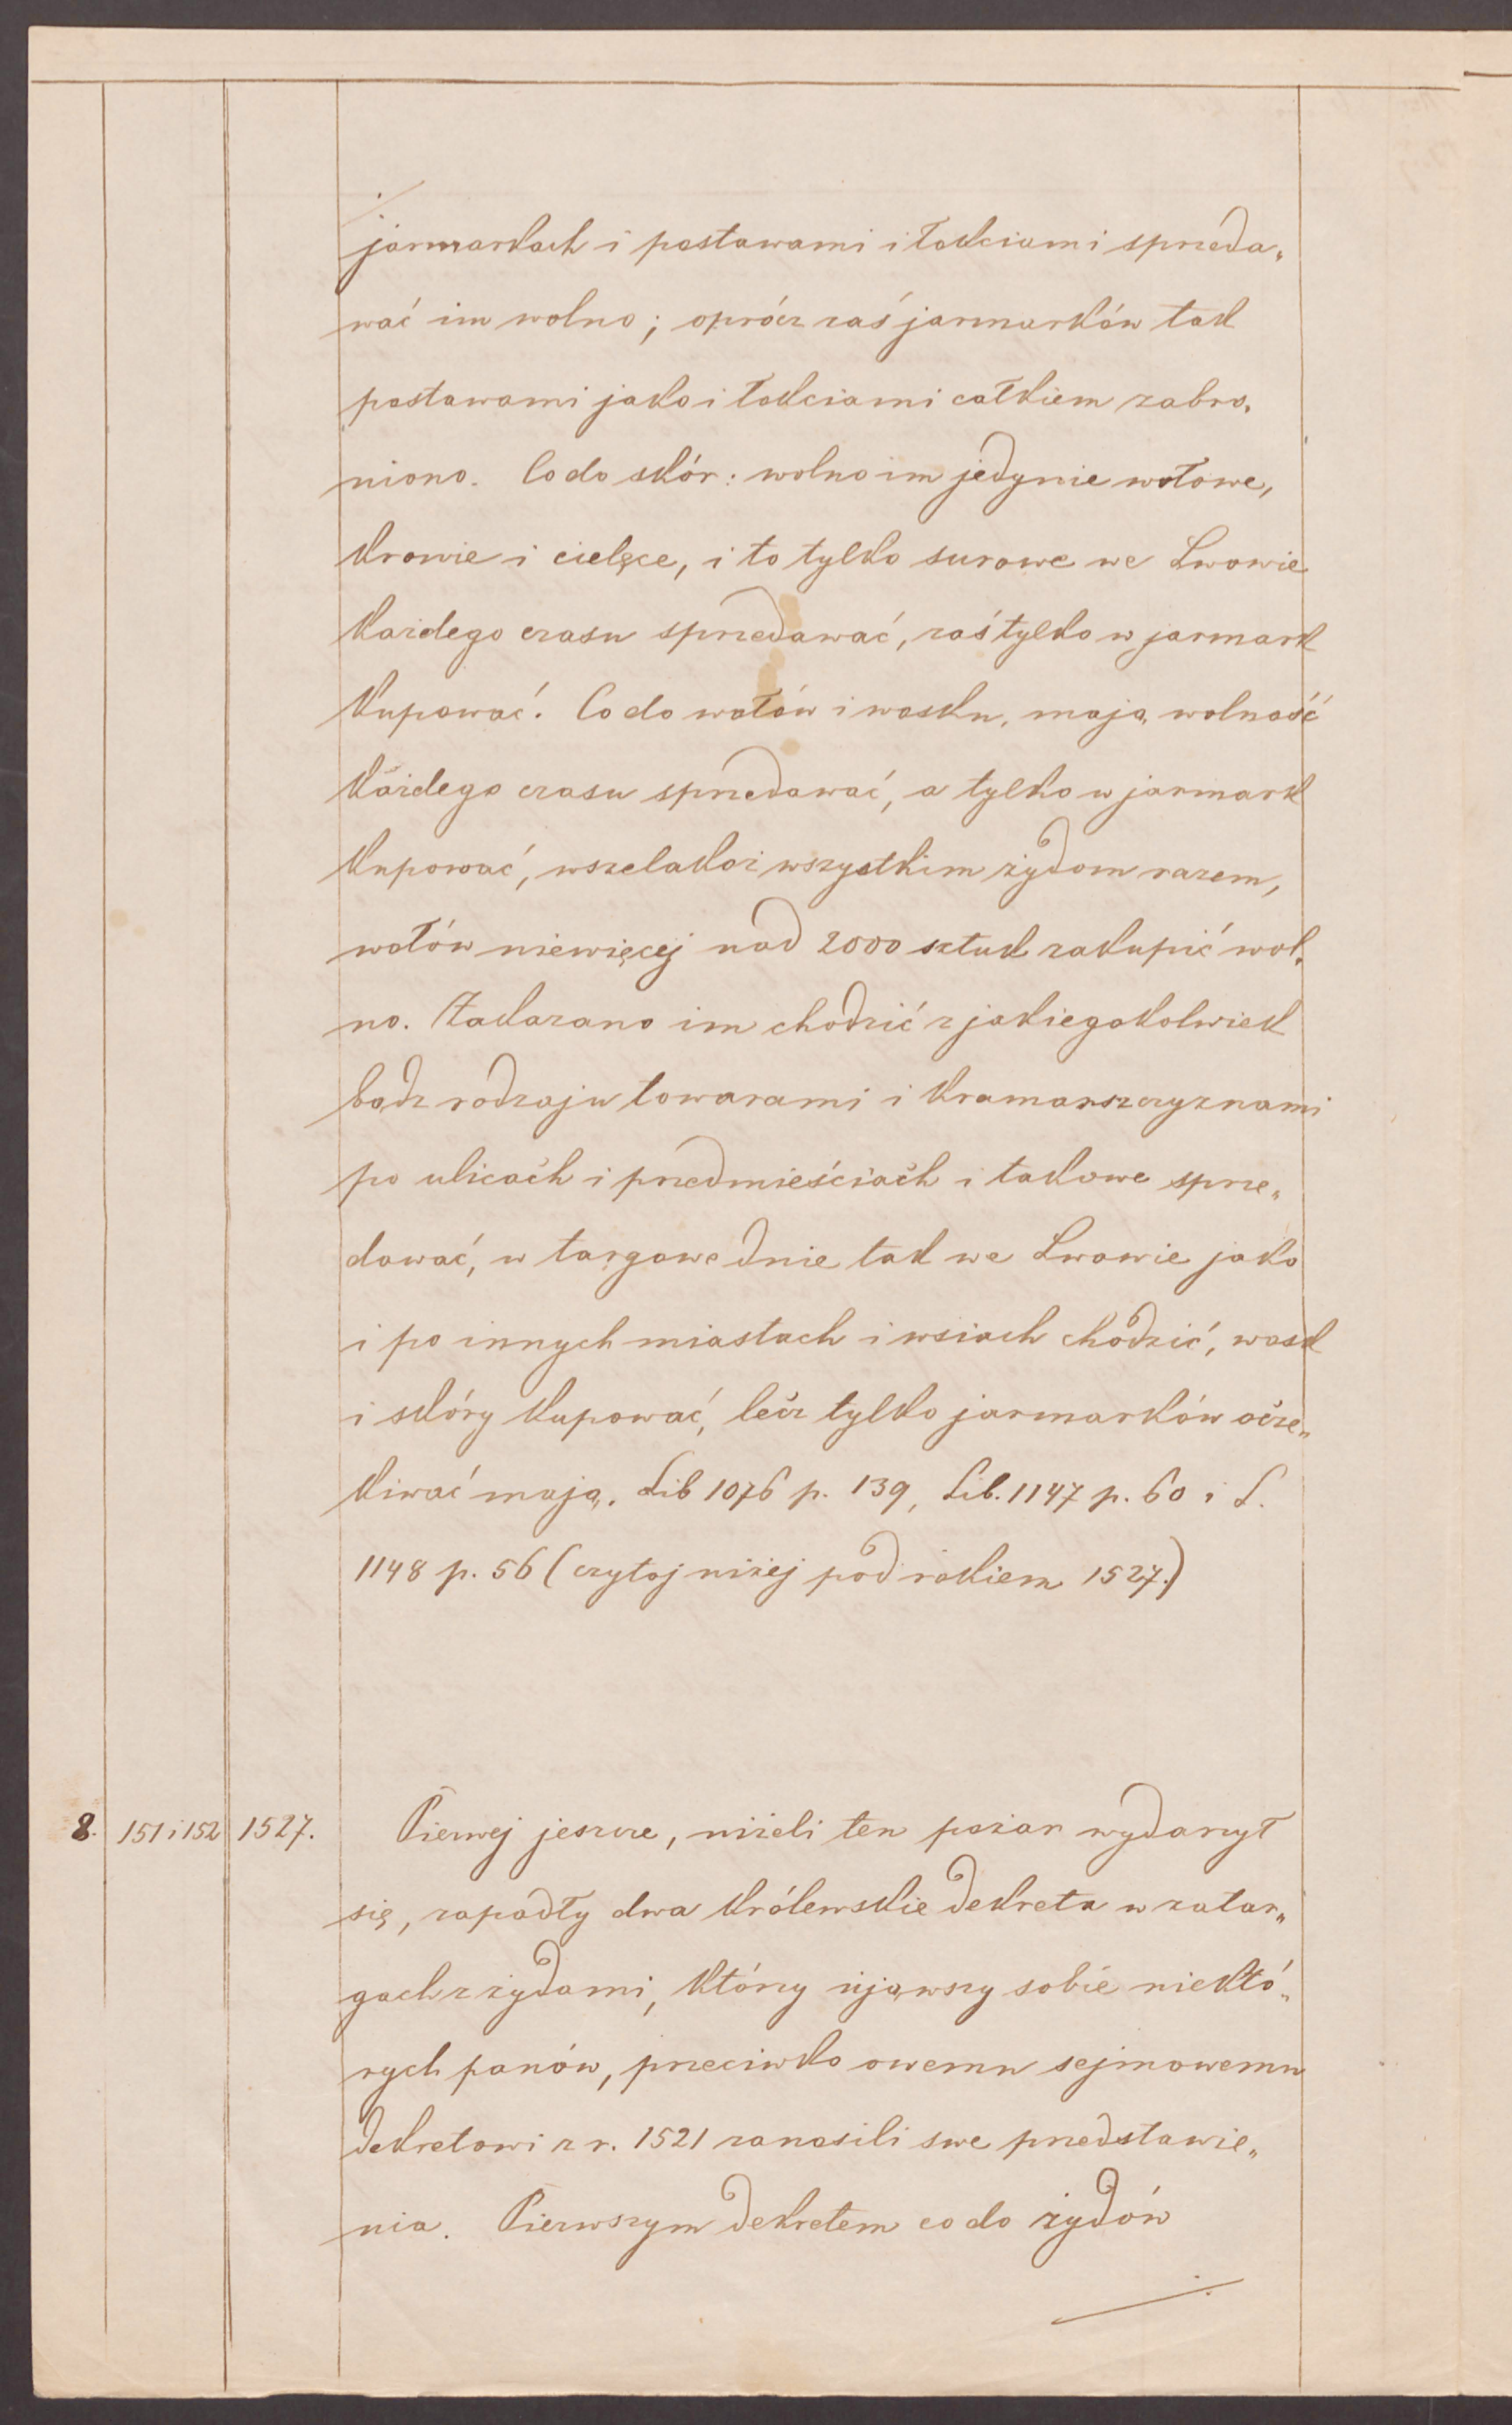 jarmarkach i postawami i łokciami sprzeda„
wać im wolno; oprócz zaś jarmarków tak
postawami jako i łokciami całkiem zabro„
niono. Co do skór: wolno im jedynie wołowe,
krowie i cielęce, i to tylko surowe we Lwowie
każdego czasu sprzedawać, zaś tylko w jarmark
kupować. Co do wołów i wosku, mają wolność
każdego czasu sprzedawać, a tylko w jarmark
kupować, wszelakoż wszystkim żydom razem,
wołów niewięcej nad 2000 sztuk zakupić wol„
no. Zakazano im chodzić z jakiegokolwiek
bądz rodzaju towarami i kramarszczyznami
po ulicach i przedmieściach i takowe sprze„
dować, w targowe dnie tak we Lwowie jako
i po innych miastach i wsiach chodzić, wosk
i skóry kupować, lecz tylko jarmarków ocze„
kiwać mają. Lib 1076 p. 139, Lib. 1147 p. 60 i L.
1148 p. 56 (czytaj niżej pod rokiem 1527.)
8. 151 i 152 1527. Pierwej jeszcze, niżeli ten pożar wydarzył
się, zapadły dwa królewskie dekreta w zatar„
gach z żydami, którzy ująwszy sobie niektó„
rych panów, przeciwko owemu sejmowemu
dekretowi z r. 1521 zanosili swe przedstawie„
nia. Pierwszym dekretem co do żydów